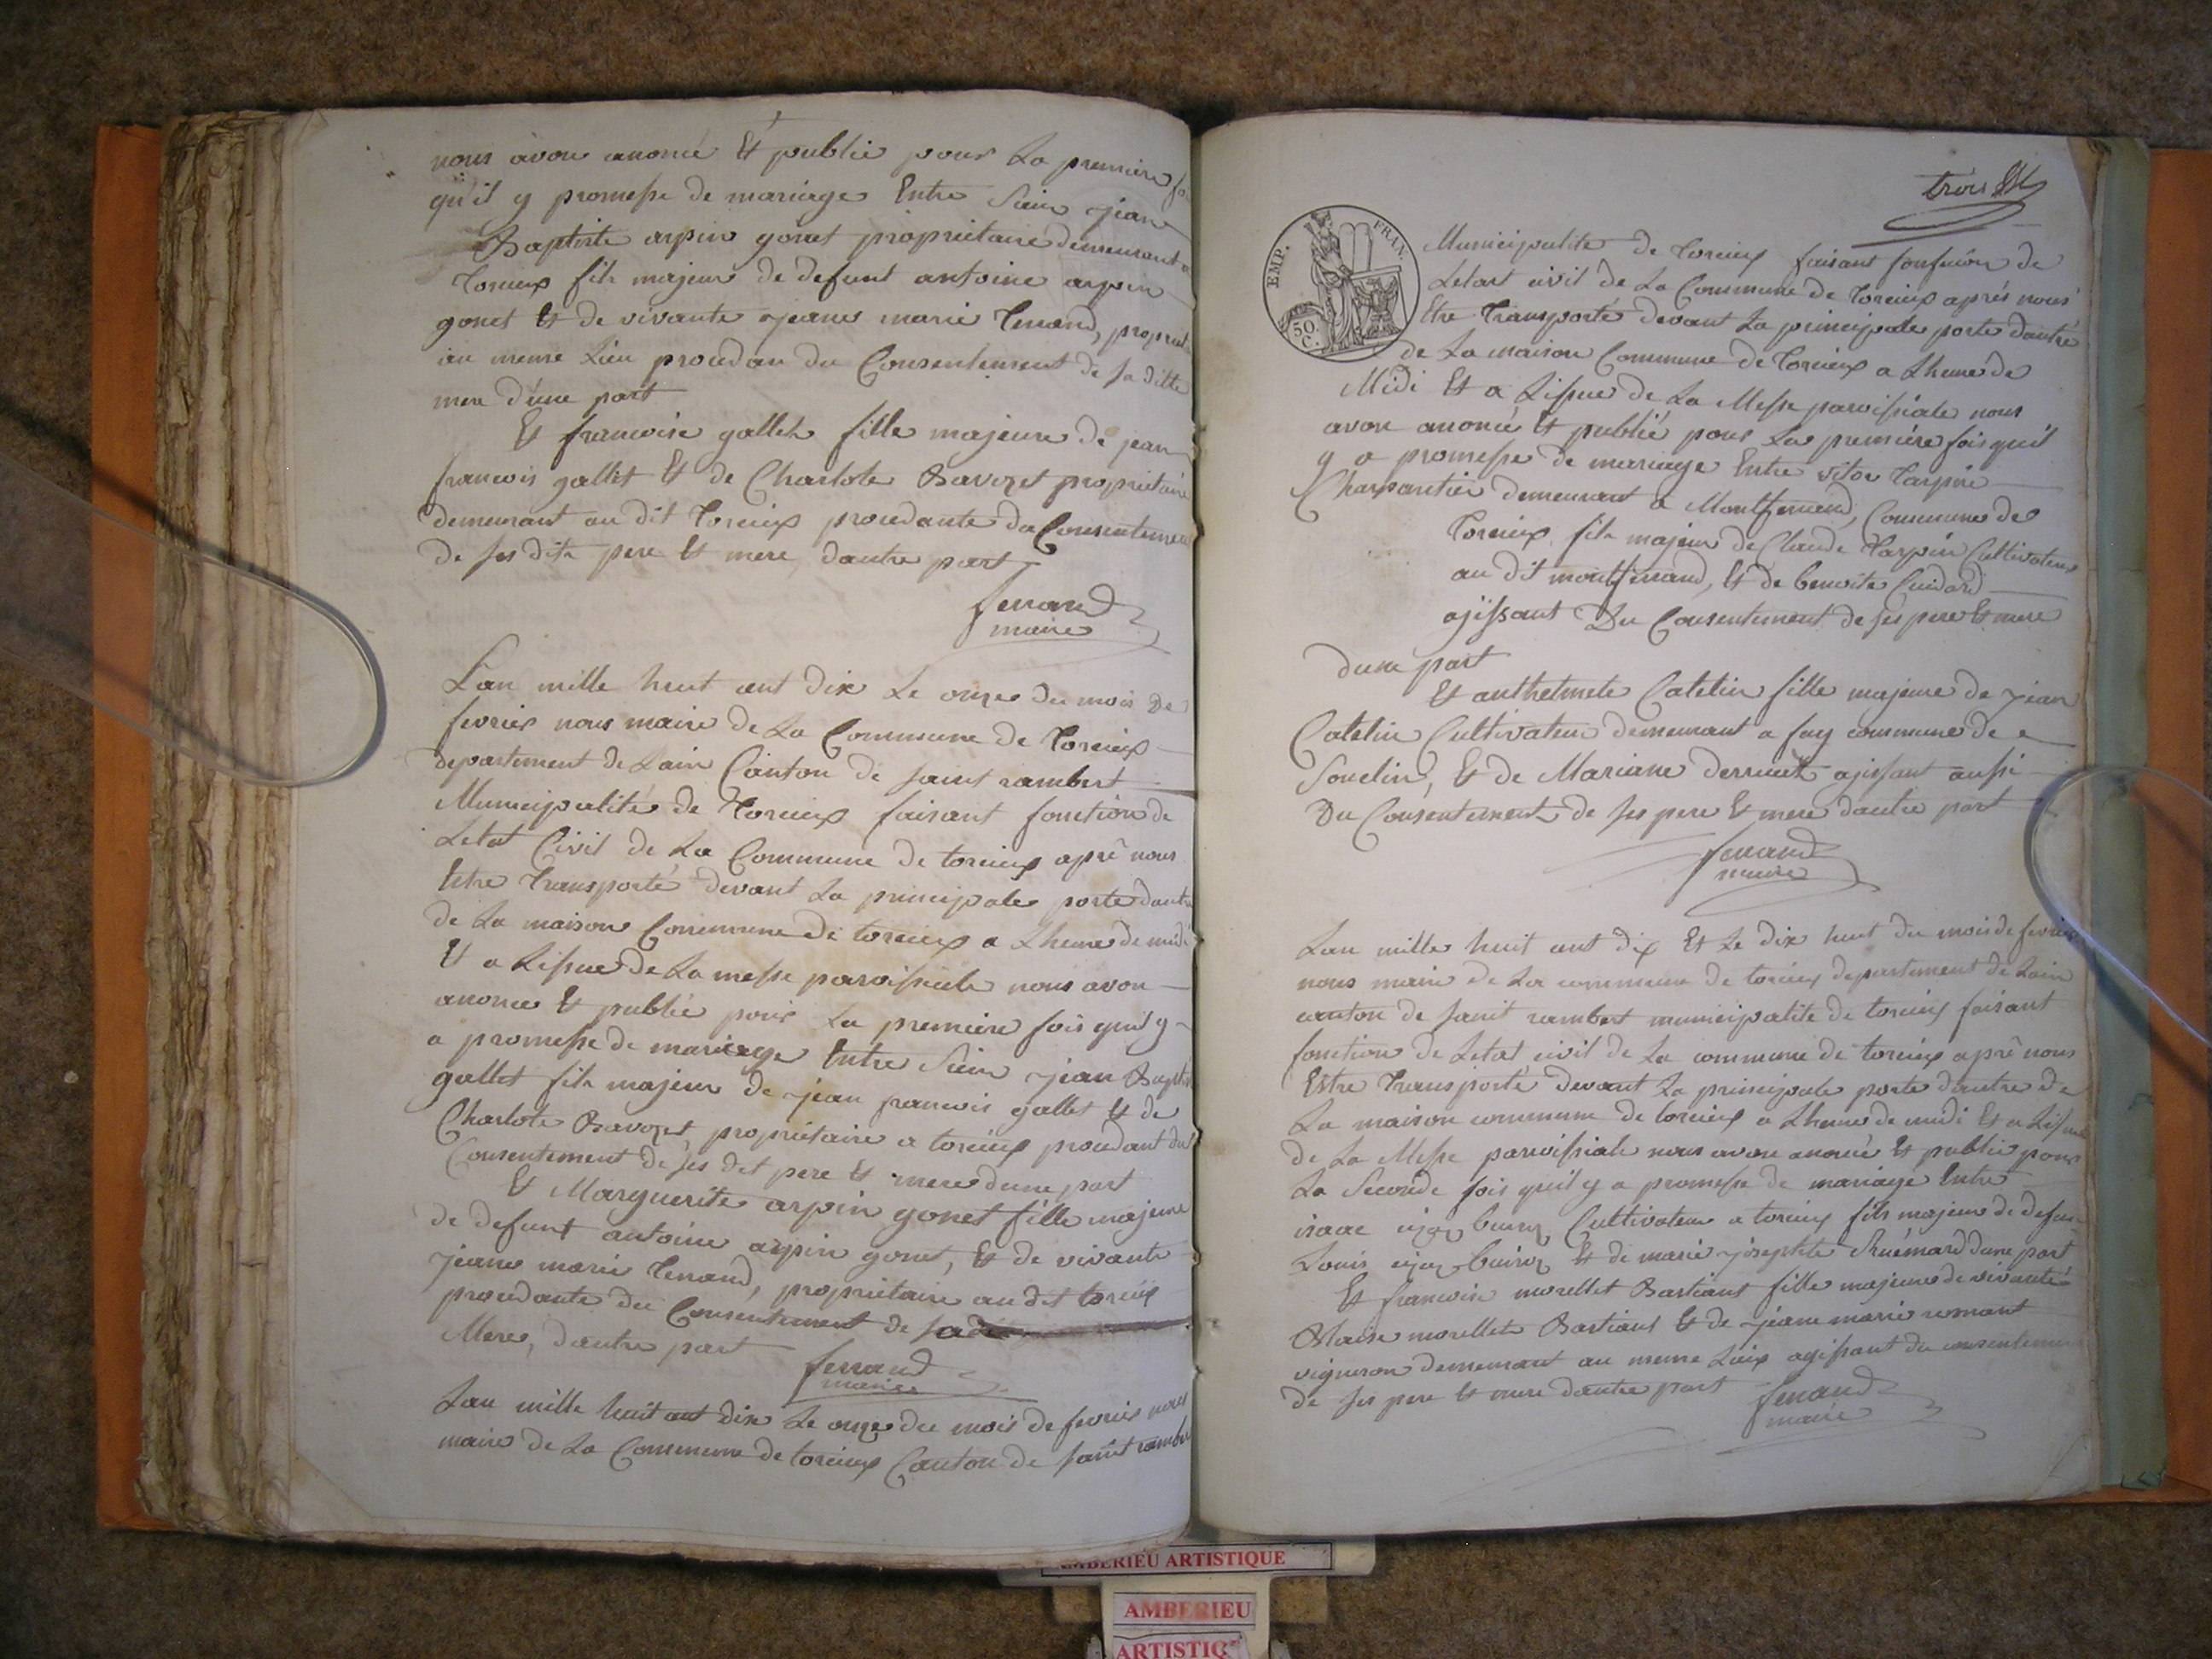 nous avon anoncé Et publié pour La premiere
qu'il y promesse de mariage Entre Sieur jean
Baptiste arpin gonet propriétaire demeurant a
torcieux fils majeur de defunt antoine arpin
gonet Et de vivante jeane marie tenand,
au meme Lieu procedan du Consentement de sa ditte
mere d'une part
Et francoise gallet fille majeure de jean
francois gallet Et de Charlote Bavozet propriétaire
demeurant au dit Torcieux procedante du Consentemen
de ses dits pere Et mere, dautre part
ferrand
maire
L'an mille huit cent dix Le onze du mois De
fevrier nous maire de La Commune de Torcieux
departement de Lain Canton de saint rambert
Municipalité de Torcieux faisant fonction de
Letat Civil de La Commune de torcieux apré nous
Estre Transporté devant La principale porte
de La maison Commune de torcieux a Lheure de midi
Et a Lissue de La messe paroissiale nous avon
anoncé Et publié pour La premiere fois quil y
a promesse de mariage Entre Sieur jean
gallet fils majeur de jean francois gallet Et de
Charlote Bavozet, propriétaire a torcieux procedant du
Consentement de ses dit pere Et mere dune part
Et Marguerite arpin gonet fille majeure
de defunt antoine arpin gonet, Et de vivante
jeane marie tenand, propriétaire au dit torcieux
procedante du Consentement de
Mere, dautre part
ferrand
maire
Lan mille huit cent dix Le onze du mois de fevrier nous
maire de La Commune de torcieux Canton de saint
trois
EMP. FRAN.
50. C.
Municipalité de Torcieux faisant de
Letat civil de La Commune de Torcieux aprés nous
Etre Transporté devant La principale porte dantré
de La maison Commune de Torcieux a Lheure de
Midi Et a Lissue de La Messe paroissiale nous
avon anoncé Et publié pour La premiére fois quil
y a promesse de mariage Entre vitor tarpin
Charpantier demeurant a Montferrand, Commune de
Torcieux fils majeur de Claude Tarpin Cultivateur
au dit montferrand, Et de benoite
agissant Du Consentement de ses pere Et mere
dune part
Et anthelmete Catelin fille majeure de jean
Catelin Cultivateur demeurant a fay commune de
Souclin, Et de Mariane derruet agissant aussi
Du Consentement de ses pere Et mere dautre part
ferrand
maire
Lan mille huit cent dix Et Le dix huit du mois de fevrier
nous maire de La commune de torcieux departement de Lain
canton de saint rambert municipalite de torcieux faisant
fonction de Letat civil de La commune de torcieux apré nous
Estre Transporté devant La principale porte dantre de
La maison commune de torcieux a Lheure de midi Et a
de La Messe paroissiale nous avon anoncé Et publié pour
La Seconde fois quil y a promesse de mariage Entre
isaac Cultivateur a torcieux fils majeur de
Louis Et de marie josephete dune part
Et francoise morellet Bastiant fille majeure de vivante
Blaise morellet Bastiant Et de jeane marie romant
vigneron demeurant au meme Lieu agissant du
de ses pere Et mere dautre part
ferrand
maire
AMBERIEU ARTISTIQUE
AMBERIEU